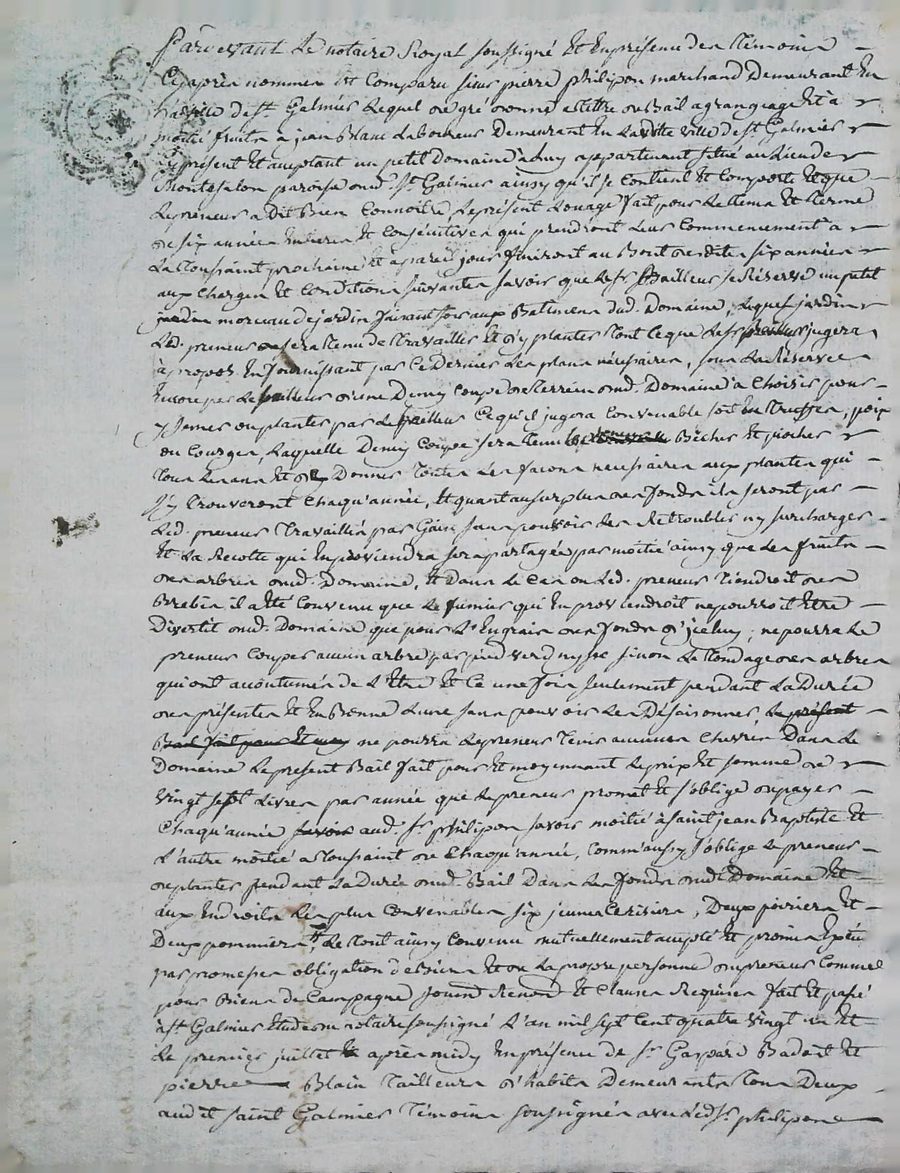 Pardevant Le notaire Royal soussigné Et En présence des Témoins
Cy après nommés Est Comparu sieur pierre philipon marchand Demeurant En
La ville de st. Galmier Lequel de gré donne à titre de Bail à grangeage Et à
moitié fruits à jean Blanc Laboureur Demeurant En La ditte ville de st Galmier
Cy présent Et acceptant un petit Domaine à luy appartenant situé au Lieu de
Montesalon paroisse dud. St Galmier ainsy qu'il se Contient Et Comporte Et que
Le preneur a dit Bien Connoître Le présent Louage fait pour Le tems Et terme
de six années Entieres Et Consécutives qui prendront Leur Commencement à
La Toussaint prochaine Et à pareil jour finiront au Bout desdites six années
aux Charges Et Conditions suivantes savoir que Le sr. Bailleur se Réserve un petit
jardin morceau de jardin faisant face aux Batimens dud. Domaine, Lequel jardin
Led. preneur sera tenu de Travailler Et d'y planter tout Ce que Le sr jugera
à propos En fournissant par Ce Dernier Les plans nécessaires, sous La Réserve
Encore par Le Bailleur d'une Demy Coupe de Terrein dud. Domaine à Choisir pour
y semer ou planter par Le Bailleur Ce qu'il jugera Convenable soit En Truffes, pois
ou Courges, Laquelle Demy Coupe sera tenu Bêcher Et piocher
tous Les ans Et d'y Donner Toutes Les façons nécessaires aux plantes qui
s'y trouveront Chaqu'année, Et quant au surplus des fonds ils seront par
Led. preneur Travaillés par Gain sans pouvoir Les Retroubler ny surcharger
Et La Récolte qui En proviendra sera partagée par moitié ainsy que Les fruits
des arbres dud. Domaine, Et Dans Le Cas où Led. preneur Tiendroit des
Brebis il a été Convenu que Le fumier qui En proviendroit ne pourroit Etre
Divertit dud. Domaine que pour L'Engrais des fonds d'iceluy; ne pourra Le
preneur Couper aucun arbre par pied verd ny sec sinon Le Tondage des arbres
qui ont accoutumés de L'Etre Et Ce une fois seulement pendant La Durée
des présentes Et En Bonne Lune sans pouvoir Les Désaisonner Le présent
Bail fait pour Et moy ne pourra Le preneur Tenir aucunes Chevres Dans Le
Domaine Le présent Bail fait pour Et moyennant Le prix Et somme de
vingt sept Livres par année que Le preneur promet Et s'oblige de payer
Chaqu'année savoir aud. sr philipon savoir moitié à saint jean Baptiste Et
L'autre moitié à Toussaint de Chaqu'année, Comm'aussy s'oblige Le preneur
de planter pendant La Durée dud. Bail Dans Les fonds dudt Domaine Et
aux Endroits Les plus Convenables six jeunes Cerisiers, Deux poiriers Et
Deux pommiers Le Tout ainsy Convenu mutuellement accepté Et promis
par promesses obligation de Biens Et de La propre personne du preneur Comme
pour Biens de Campagne soumis Renonc Et Clauses Requises fait Et passé
à St Galmier Etude du notaire soussigné L'an mil sept Cent quatre vingt un Et
Le premier juillet après midy En présence de sr. Gaspard Badoit Et
pierre Blain Tailleurs d'habits Demeurants Tous Deux
audit saint Galmier Témoins soussignés avec Led sr. philipon